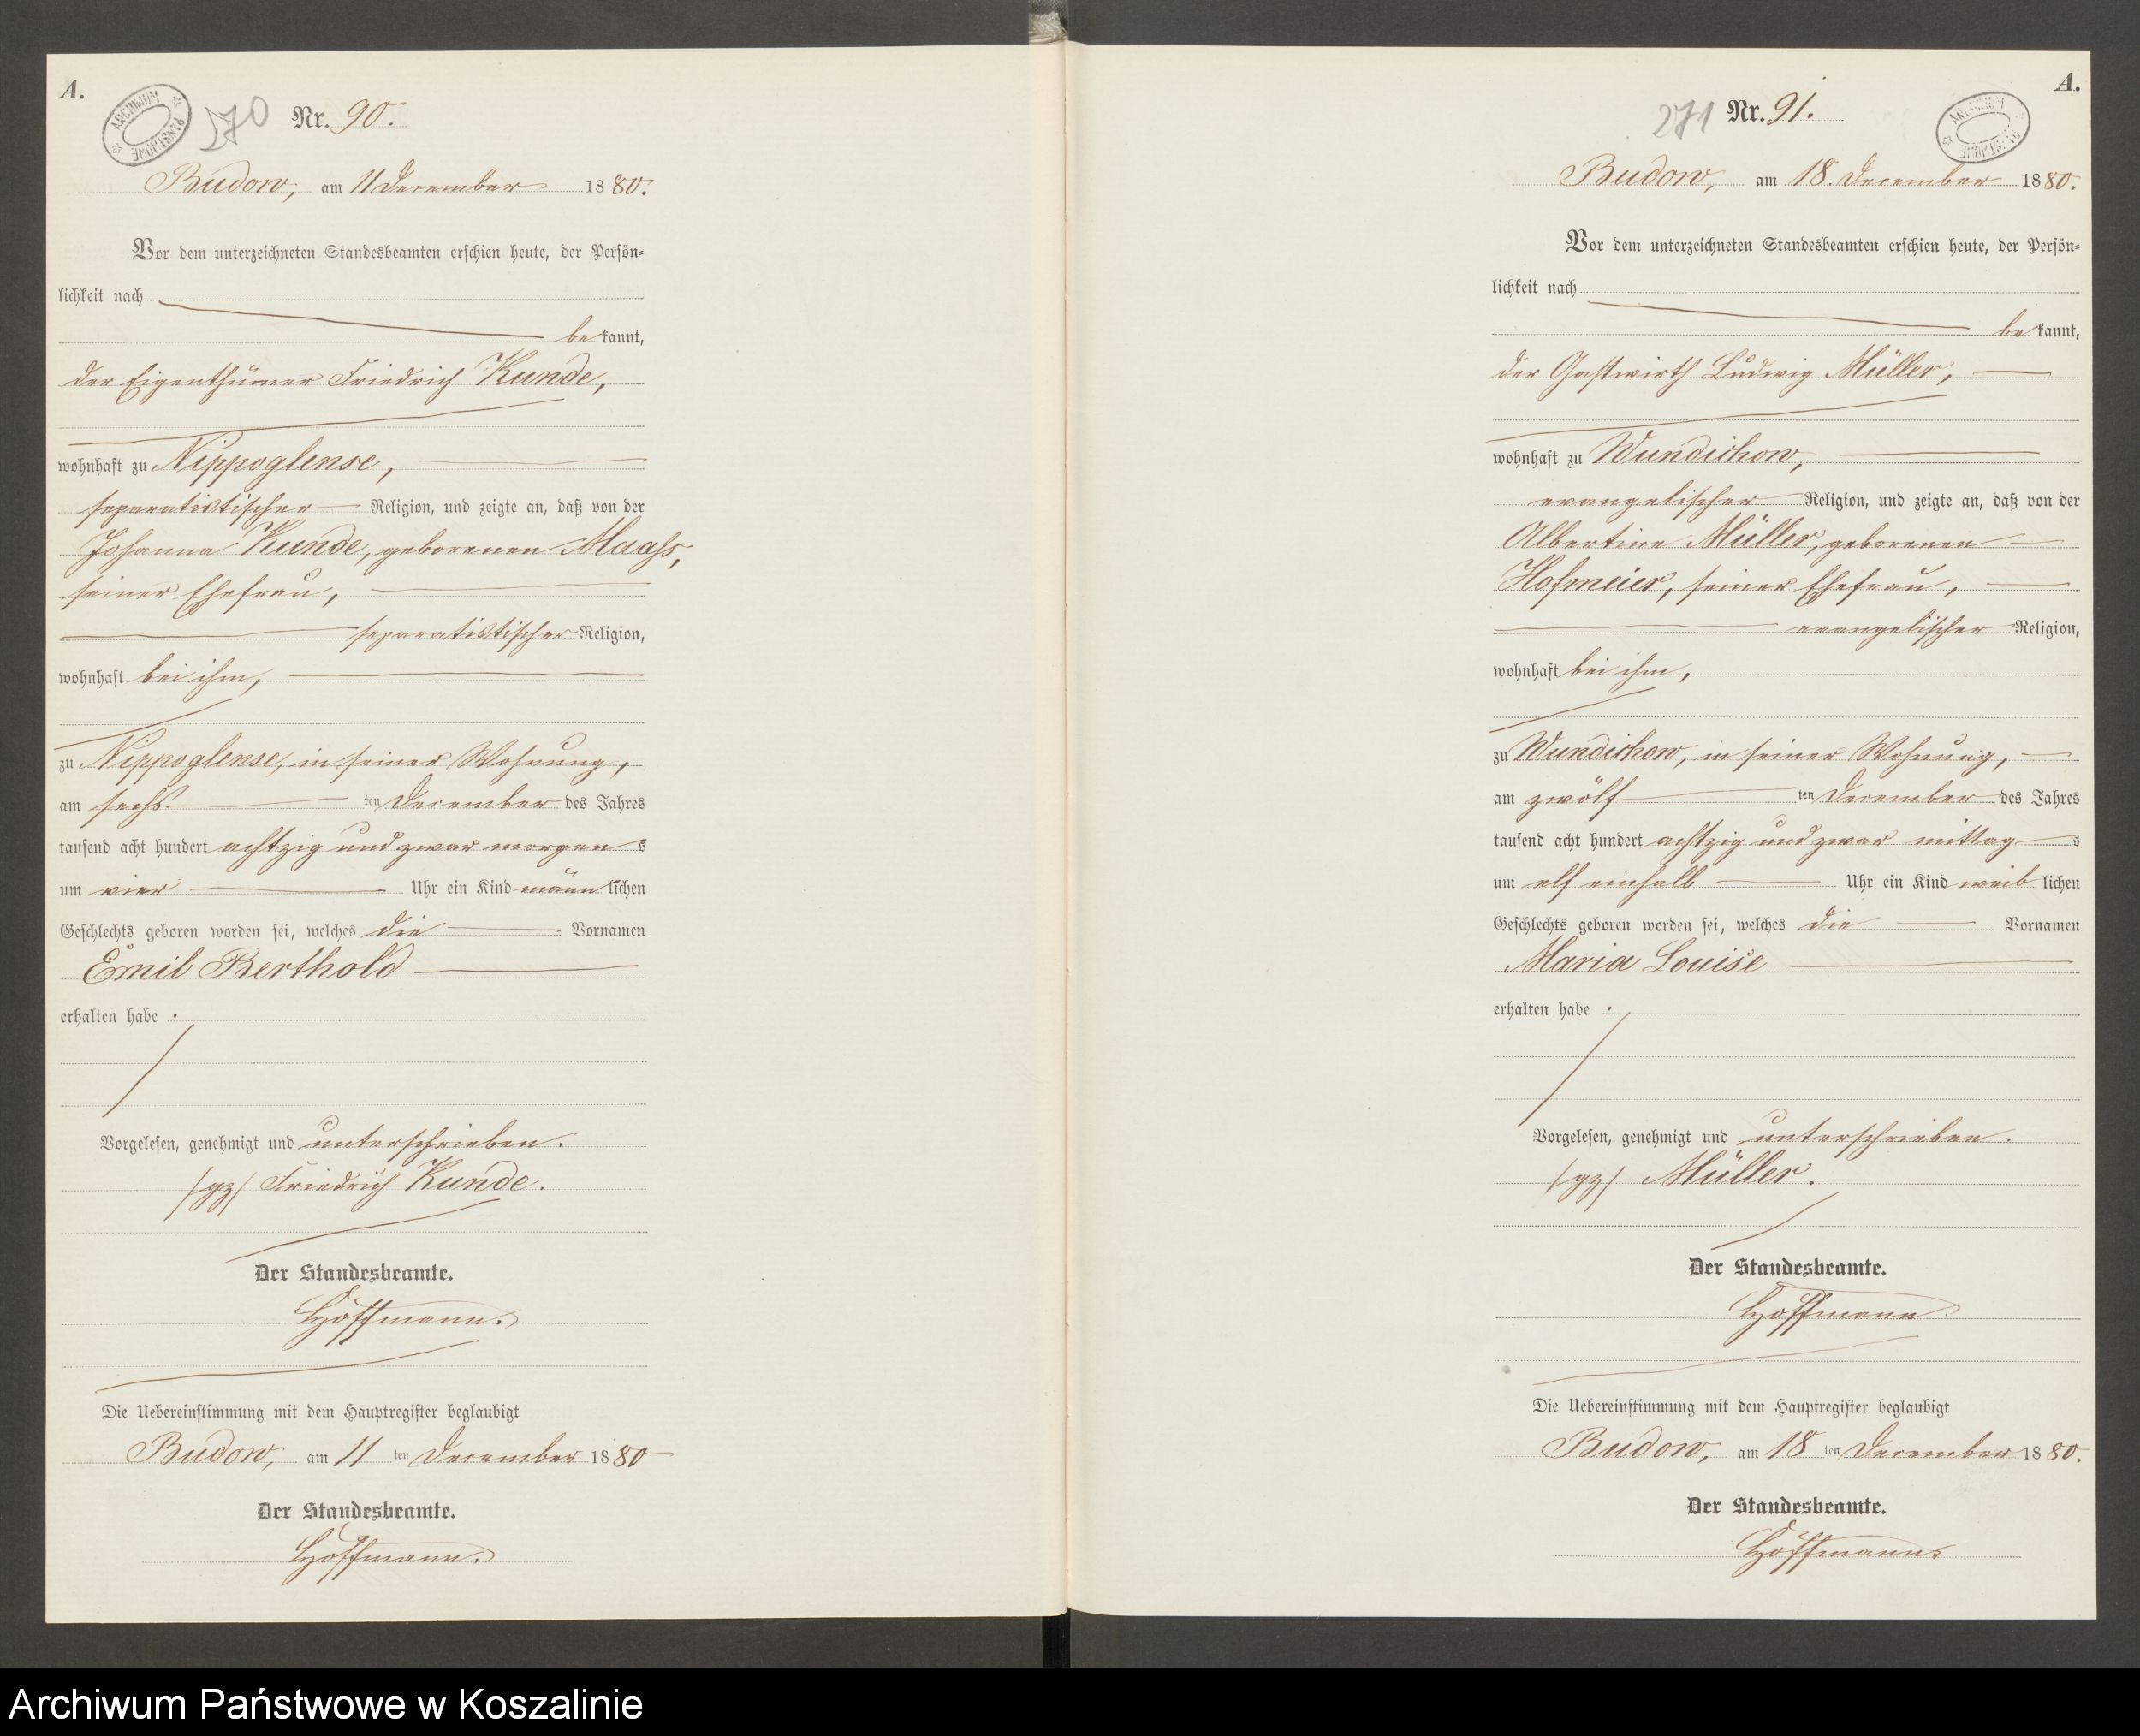 A.
ARCHIWUM PAŃSTWOWE
270 Nr. 90.
Budow, am 11 December 1880.
Vor dem unterzeichneten Standesbeamten erschien heute, der Persön-
lichkeit nach
bekannt,
der Eigenthümer Friedrich Kunde,
wohnhaft zu Nippoglense,
separatistischer Religion, und zeigte an, daß von der
Johanna Kunde, geborenen Maaß,
seiner Ehefrau,
separatistischer Religion,
wohnhaft bei ihm,
zu Nippoglense, in seiner Wohnung,
am sechs ten December des Jahres
tausend acht hundert achtzig und zwar morgens
um vier Uhr ein Kind männlichen
Geschlechts geboren worden sei, welches die Vornamen
Emil Berthold
erhalten habe.
Vorgelesen, genehmigt und unterschrieben.
/gz/ Friedrich Kunde.
Der Standesbeamte.
Hoffmann.
Die Uebereinstimmung mit dem Hauptregister beglaubigt
Budow, am 11 ten December 1880
Der Standesbeamte.
Hoffmann.
A.
ARCHIWUM PAŃSTWOWE
271 Nr. 91.
Budow, am 18. December 1880.
Vor dem unterzeichneten Standesbeamten erschien heute, der Persön-
lichkeit nach
bekannt,
der Gastwirth Ludwig Müller,
wohnhaft zu Wundichow,
evangelischer Religion, und zeigte an, daß von der
Albertine Müller, geborenen
Hofmeier, seiner Ehefrau,
evangelischer Religion,
wohnhaft bei ihm,
zu Wundichow, in seiner Wohnung,
am zwölf ten December des Jahres
tausend acht hundert achtzig und zwar mittags
um elf einhalb Uhr ein Kind weiblichen
Geschlechts geboren worden sei, welches die Vornamen
Maria Louise
erhalten habe.
Vorgelesen, genehmigt und unterschrieben.
/gz/ Müller.
Der Standesbeamte.
Hoffmann.
Die Uebereinstimmung mit dem Hauptregister beglaubigt
Budow, am 18 ten December 1880.
Der Standesbeamte.
Hoffmann.
Archiwum Państwowe w Koszalinie